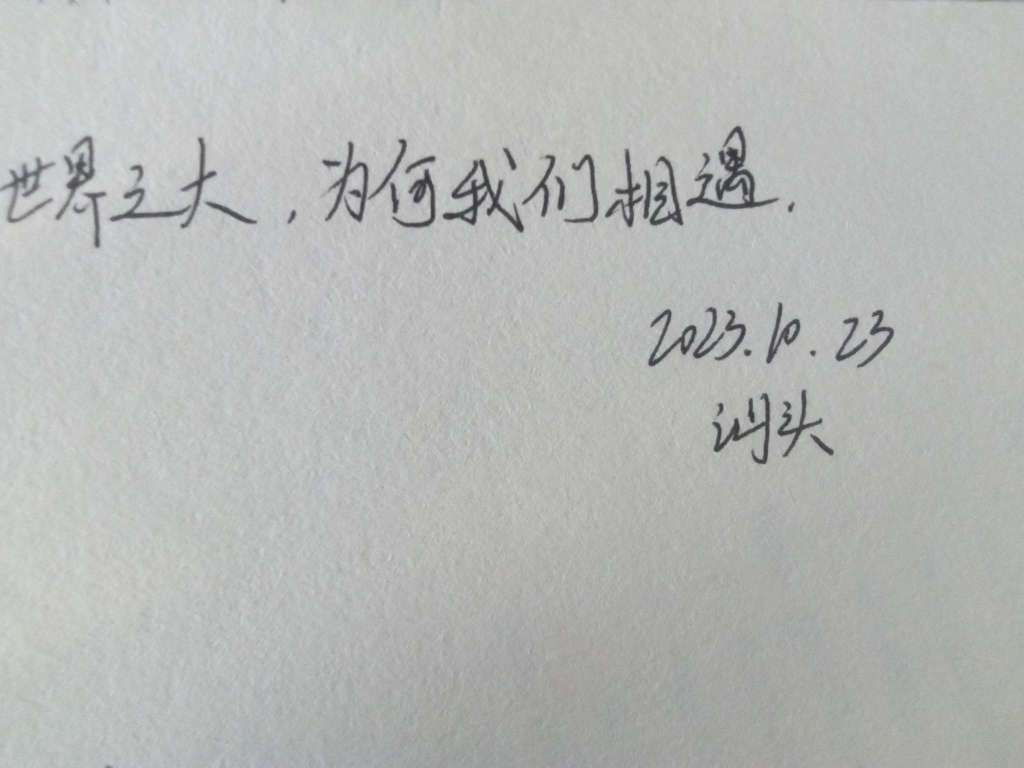 世界之大，为何我们相遇.
2023.10.23
汕头